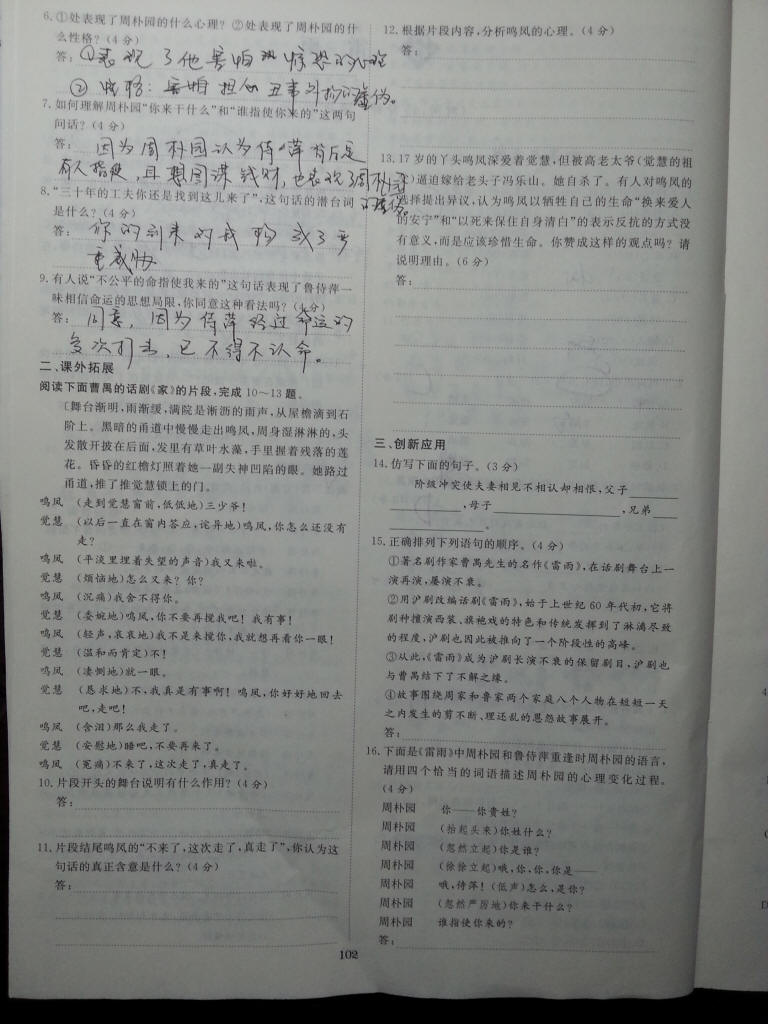 6.①处表现了周朴园的什么心理?②处表现了周朴园的什
么性格?(4分)
答:①表现了他害怕和惊恐的心理
②性格:害怕担心丑事外扬的虚伪。
7.如何理解周朴园“你来干什么”和“谁指使你来的”这两句
问话?(4分)
答:因为周朴园认为侍萍背后是
有人指使,且想图谋钱财,也表现了周朴园
的虚伪。
8.“三十年的工夫你还是找到这儿来了”,这句话的潜台词
是什么?(4分)
答:你的到来的我构成了严
重威胁
9.有人说“不公平的命指使我来的”这句话表现了鲁侍萍一
味相信命运的思想局限,你同意这种看法吗?(4分)
答:同意,因为侍萍经过命运的
多次打击,已不得不认命。
二、课外拓展
阅读下面曹禺的话剧《家》的片段,完成10~13题。
〔舞台渐明,雨渐缓,满院是淅沥的雨声,从屋檐滴到石
阶上。黑暗的甬道中慢慢走出鸣凤,周身湿淋淋的,头
发散开披在后面,发里有草叶水藻,手里握着残落的莲
花。昏昏的红檐灯照着她一副失神凹陷的眼。她路过
甬道,推了推觉慧锁上的门。
鸣凤 (走到觉慧窗前,低低地)三少爷!
觉慧 (以后一直在窗内答应,诧异地)鸣凤,你怎么还没有
走?
鸣凤 (平淡里埋着失望的声音)我又来啦。
觉慧 (烦恼地)怎么又来?你?
鸣凤 (沉痛)我舍不得你。
觉慧 (委婉地)鸣凤,你不要再搅我吧!我有事!
鸣凤 (轻声,哀哀地)我不是来搅你,我就想再看你一眼!
觉慧 (温和而肯定)不!
鸣凤 (凄恻地)就一眼。
觉慧 (恳求地)不,我真是有事啊!鸣凤,你好好地回去
吧,走吧!
鸣凤 (含泪)那么我走了。
觉慧 (安慰地)睡吧,不要再来了。
鸣凤 (冤痛)不来了,这次走了,真走了。
10.片段开头的舞台说明有什么作用?(4分)
答:
11.片段结尾鸣凤的“不来了,这次走了,真走了”,你认为这
句话的真正含意是什么?(4分)
答:
12.根据片段内容,分析鸣凤的心理。(4分)
答:
13.17岁的丫头鸣凤深爱着觉慧,但被高老太爷(觉慧的祖
)逼迫嫁给老头子冯乐山。她自杀了。有人对鸣凤的
选择提出异议,认为鸣凤以牺牲自己的生命“换来爱人
的安宁”和“以死来保住自身清白”的表示反抗的方式没
有意义,而是应该珍惜生命。你赞成这样的观点吗?请
说明理由。(6分)
答:
三、创新应用
14.仿写下面的句子。(3分)
阶级冲突使夫妻相见不相认却相恨,父子________
________,母子________,兄弟____
________。
15.正确排列下列语句的顺序。(4分)
①著名剧作家曹禺先生的名作《雷雨》,在话剧舞台上一
演再演,屡演不衰。
②用沪剧改编话剧《雷雨》,始于上世纪60年代初,它将
剧种擅演西装、旗袍戏的特色和传统发挥到了淋漓尽致
的程度,沪剧也因此被推向了一个阶段性的高峰。
③从此,《雷雨》成为沪剧长演不衰的保留剧目,沪剧也
与曹禺结下了不解之缘。
④故事围绕周家和鲁家两个家庭八个人物在短短一天
之内发生的剪不断、理还乱的恩怨故事展开。
答:
16.下面是《雷雨》中周朴园和鲁侍萍重逢时周朴园的语言,
请用四个恰当的词语描述周朴园的心理变化过程。
(4分)
周朴园 你——你贵姓?
周朴园 (抬起头来)你姓什么?
周朴园 (忽然立起)你是谁?
周朴园 (徐徐立起)哦,你,你,你是——
周朴园 哦,侍萍!(低声)怎么,是你?
周朴园 (忽然严厉地)你来干什么?
周朴园 谁指使你来的?
答:
102